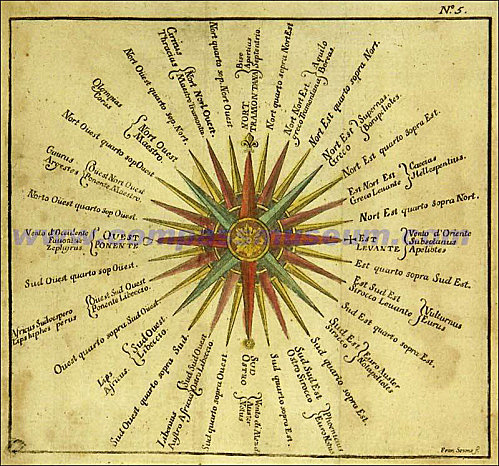 N.º 5.
NORT
TRAMONTANA
Bise
Apartias
Septentrio
Nort quarto sopra Nort Est
Nort Nort Est
Greco Tramontana
Aquilo
Boreas
Nort Est quarto sopra Nort.
Nort Est
Greco
Supernas
Nort Est quarto sopra Est.
Est Nort Est
Greco Levante
Caecias
Hellespontius.
Est quarto sopra Nort.
EST
LEVANTE
Vento d'Oriente
Subsolanus
Apeliotes
Est quarto sopra Sud Est
Est Sud Est
Sirocco Levante
Vulturnus
Eurus
Sud Est quarto sopra Est.
Sud Est
Sirocco
Euro Auster
Sud Est quarto sopra Sud.
Sud Sud Est
Ostro Sirocco
Phoenicias
Euro Notus
Sud quarto sopra Sud Est.
SUD
OSTRO
Sud quarto sop. Sud Ouest
Sud Sud Ouest
Ostro Libeccio
Libonotus
Austro Africus
Sud Ouest quarto sopra Sud.
Sud Ouest
Libeccio
Lips
Africus
Ouest quarto sopra Sud Ouest.
Ouest Sud Ouest
Ponente Libeccio.
Sud Ouest quarto sop Ouest.
OUEST
PONENTE
Vento d'Occidente
Favonius
Zephyrus
Norto Ouest quarto sop Ouest.
Ouest Nort Ouest
Ponente Maestro.
Caurus
Argestes
Nort Ouest quarto sop Ouest
Nort Ouest
Maestro
Olympias
Corus
Nort Ouest quarto sop Nort.
Nort Nort Ouest
Maestro Tramontana
Circius
Thracius
Nort quarto sop. Nort Ouest
www.compassmuseum.com